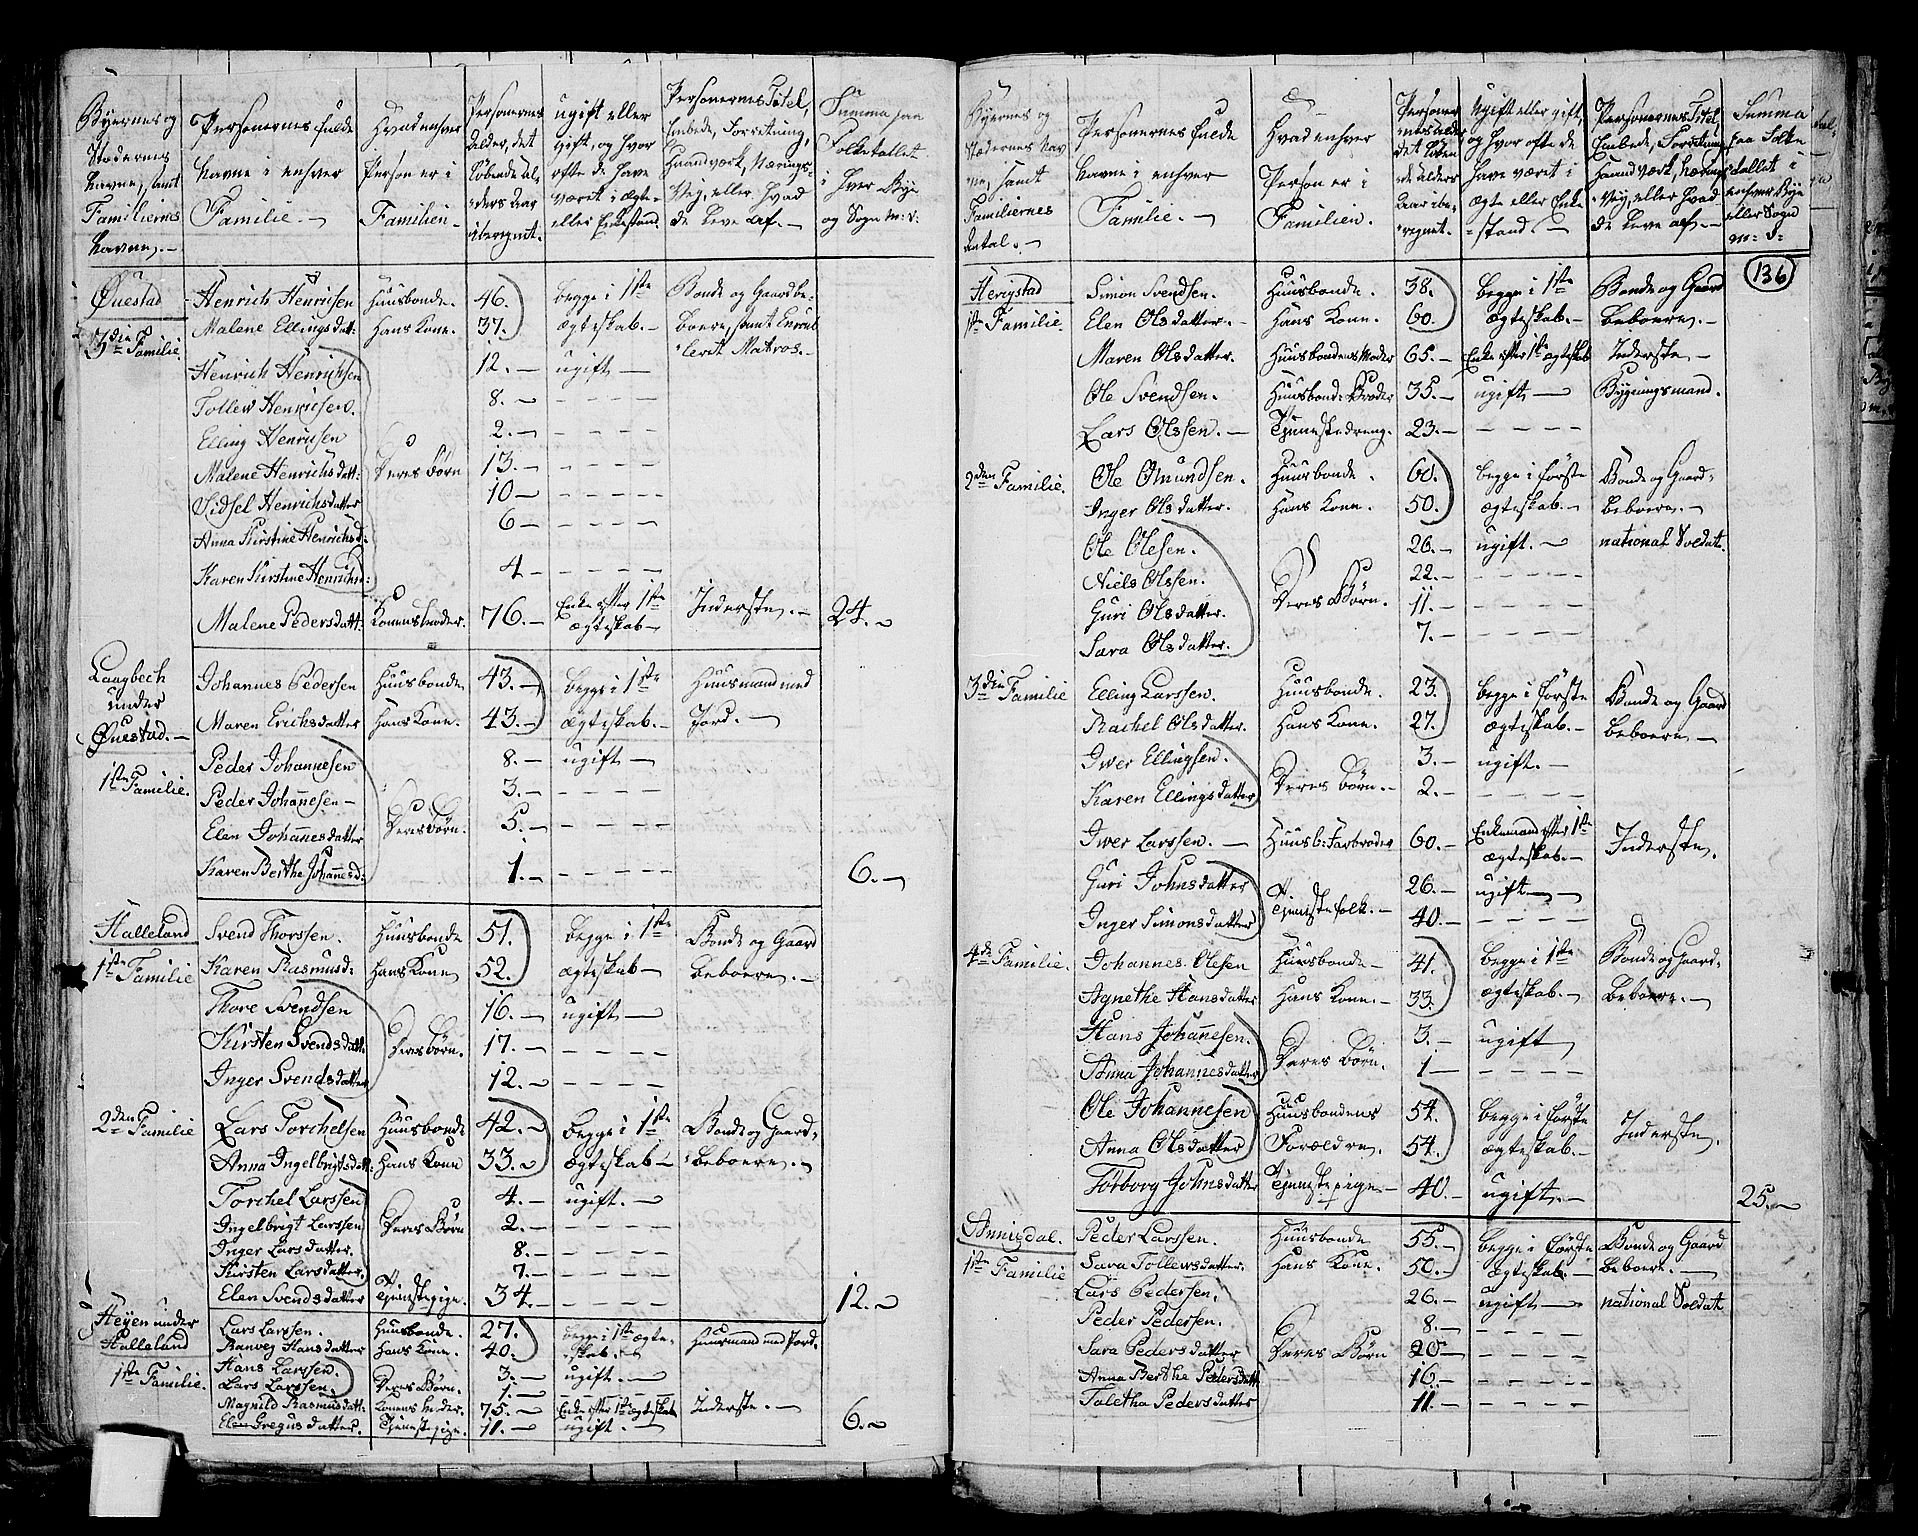 Byernes og Stædernes Navne, samt Familiernes Navne.
Personernes fulde Navne i enhver Familie.
Hvad enhver Person er i Familien.
Personernes Alder, det løbende Alders Aar iberegnet.
ugift eller gift, og hvor ofte de have været i Ægte- eller Enkestand.
Personernes Titel, Embede, Forretning, Haandværk, Nærings-Vej, eller Hvad de leve af.
Summa paa Folketallet i hver Bye og Sogn m: v:
Øuestad Henrich Henrichsen Huusbonde 46. begge i 1ste Bonde og Gaardbe-
3die Familie. Malene Ellingsdatt: Hans Kone. 37. Ægteskab. boere, samt Enroul-
lerit Matros.
Henrich Henrichsen 12. ugift
Tollew Henrichsen. 8. – – – –
Elling Henrichsen 2. – – – –
Malene Henrichsdatt: Deres Børn 13. – – – –
Sidsel Henrichsdatter 10 – – – –
Anna Kirstine Henrichsd: 6 – – – –
Karen Kirstine Henrichsd: 4 – – – –
Malene Pedersdatt: Konens Moder. 76. Enke efter 1ste Ægteskab Inderste. 24.
Laagbech under Øuestad.
Johannes Pedersen Huusbonde 43. begge i 1ste Huusmand med
Maren Erichsdatter Hans Kone. 43. Ægteskab. Jord.
1ste Familie.
Peder Johannesen 8. ugift
Peder Johannesen 3. – – – –
Elen Johannesdatter Deres børn. 5. – – – –
Karen Berthe Johannesd: 1. – – – – 6.
Halleland Svend Thorssen. Huusbonde 51. begge i 1ste Bonde og Gaard
1ste Familie Karen Rasmusd: Hans Kone 52. Ægteskab beboere.
Thore Svendsen 16. ugift
Kirsten Svendsdatt: Deres børn. 17. – – – –
Inger Svendsdatter 12. – – – –
2den Familie Lars Torchelsen Huusbonde 42. begge i 1ste Bonde og Gaard-
Anna Ingelbrigtsdatt: Hans Kone 33. Ægteskab beboere.
Torchel Larssen 4. ugift.
Ingelbrigt Larssen Deres Børn 2. – – – –
Inger Larsdatter. 8. – – – –
Kirsten Larsdatter. 7. – – – –
Elen Svendsdatter Tjenistepige. 34. – – – – 12.
Heyen under Halleland
Lars Larssen. Huusbonde. 27. begge i 1ste Ægte- Huusmand med Jord.
Ranveg Hansdatter Hans Kone. 40. skab.
1ste Familie. Hans Larssen. 3. ugift.
Lars Larssen. Deres Børn. 1.
Magnild Rasmusdatt: Konens Moder. 75. Enke efter 1ste Ægteskab Inderste.
Elen Gregusdatter. Tjenistepige. 11. ugift. 6.
Byernes og Stædernes Navne, samt Familiernes Antal.
Personernes fulde Navne i enhver Familie.
Hvad enhver Person er i Familien.
Personernes Alder det løbende Alders Aar iberegnet.
Ugift eller gift, og hvor ofte de have været i Ægte eller Enkestand.
Personernes Titel, Embede, Forretning, Haandværk, Nærings-Vej, eller Hvad de leve af.
Summa paa Folketallet i enhver Bye eller Sogn m: v:
136
Herigstad Simon Svendsen. Huusbonde. 38. begge i 1ste Bonde og Gaard
1ste Familie. Elen Olsdatter. Hans Kone. 60. Ægteskab. beboere.
Maren Olsdatter. Huusbondens Moder 65. Enke efter 1ste Ægteskab Inderste
Ole Svendsen. Huusbonds Broder 35. ugift Bygningsmand.
Lars Olssen. Tjenistedreng. 23. – – – –
2den Familie. Ole Omundsen. Huusbonde. 60. begge i første Bonde og Gaard-
Inger Olsdatter. Hans Kone. 50. Ægteskab. beboere.
Ole Olesen. 26. ugift. national Soldat.
Niels Olssen. 22. – – – –
Guri Olsdatter. Deres Børn. 11. – – – –
Sara Olsdatter. 7. – – – –
3die Familie Elling Larssen. Huusbonde. 23. begge i første Bonde og Gaard
Rachel Olsdatter. Hans Kone. 27. Ægteskab. beboere.
Iwer Ellingsen. 3. ugift.
Karen Ellingsdatter Deres børn. 2. – – – –
Iwer Larssen. Huusb: Farbroder 60. Enkemand efter 1ste Ægteskab. Inderste.
Guri Johnsdatter 26. ugift
Inger Simonsdatter Tjenistefolk. 40. – – – –
4de Familie. Johannes Olesen Huusbonde 41. begge i 1ste Bonde og Gaard-
Agnethe Hansdatter Hans Kone. 33. Ægteskab. beboere.
Hans Johannesen. 3. ugift
Anna Johannesdatter Deres børn. 1 – – – –
Ole Johannesen Huusbondens 54. begge i første Inderste.
Anna Olsdatter Forældre. 54. Ægteskab.
Torborg Johnsdatter Tjenistepige. 40. ugift. 25.
Anniqdal. Peder Larssen. Huusbonde 55. begge i første Bonde og Gaard
1ste Familie Sara Tollewsdatter. Hans Kone. 50. Ægteskab. beboere.
Lars Pedersen. 26. ugift national Soldat
Peder Pedersen. 8. – – – –
Sara Pedersdatter Deres Børn 20 – – – –
Anna Berthe Pedersdatt: 16. – – – –
Taletha Pedersdatter 11. – – – –